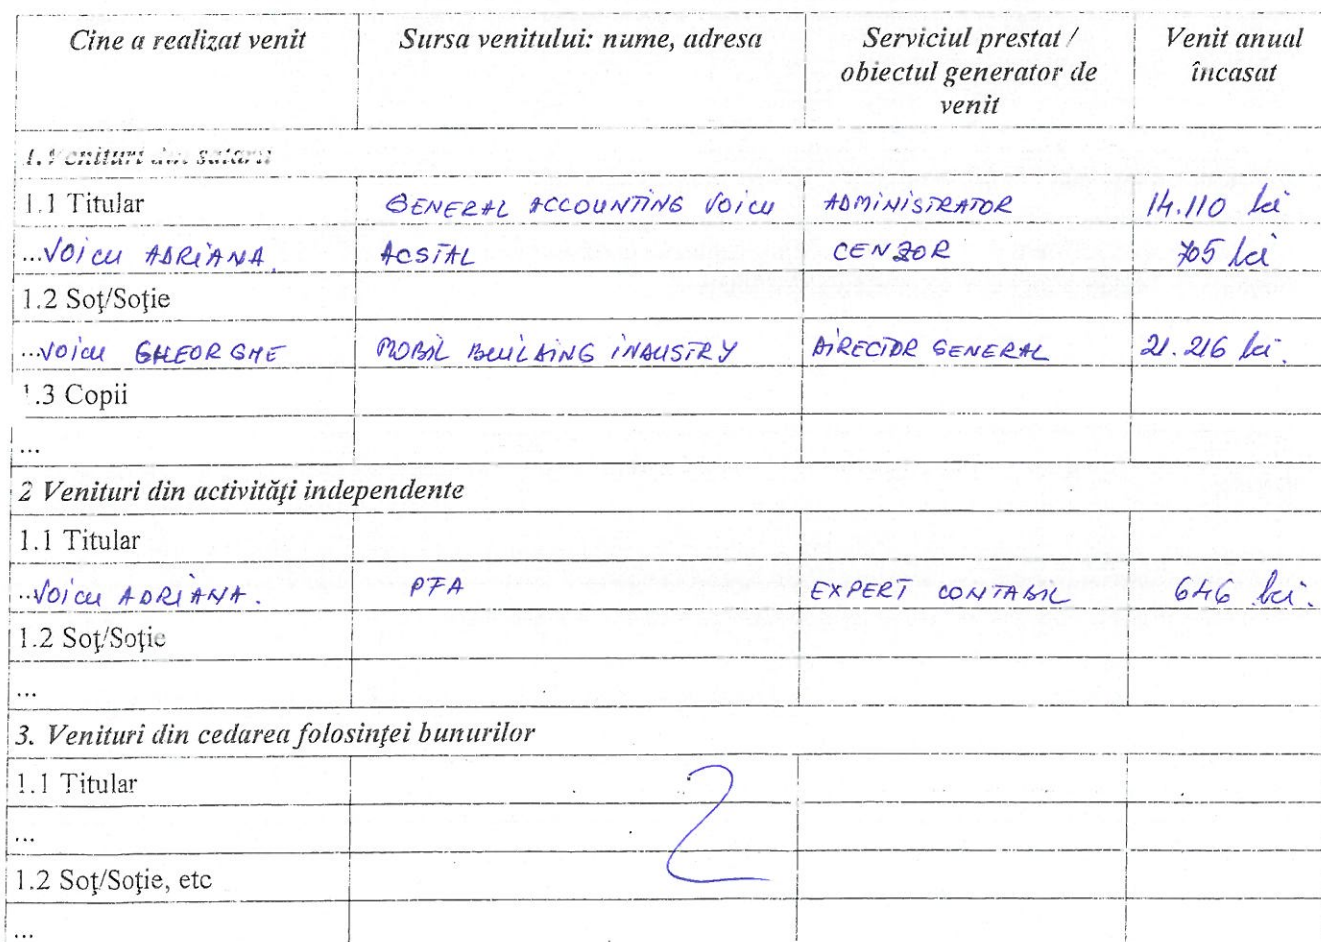 Cine a realizat venit Sursa venitului: nume, adresa Serviciul prestat / Venit anual
obiectul generator de încasat
venit
1. Venituri din salarii
1.1 Titular GENERAL ACCOUNTING VOICU ADMINISTRATOR 14.110 lei
...VOICU ADRIANA. ACSTAL CENZOR 705 lei
1.2 Soţ/Soţie
...VOICU GHEORGHE MOBIL BUILDING INDUSTRY DIRECTOR GENERAL 21.216 lei.
1.3 Copii
...
2 Venituri din activităţi independente
1.1 Titular
...VOICU ADRIANA. PFA EXPERT CONTABIL 646 lei.
1.2 Soţ/Soţie
...
3. Venituri din cedarea folosinţei bunurilor
1.1 Titular
...
1.2 Soţ/Soţie, etc
...